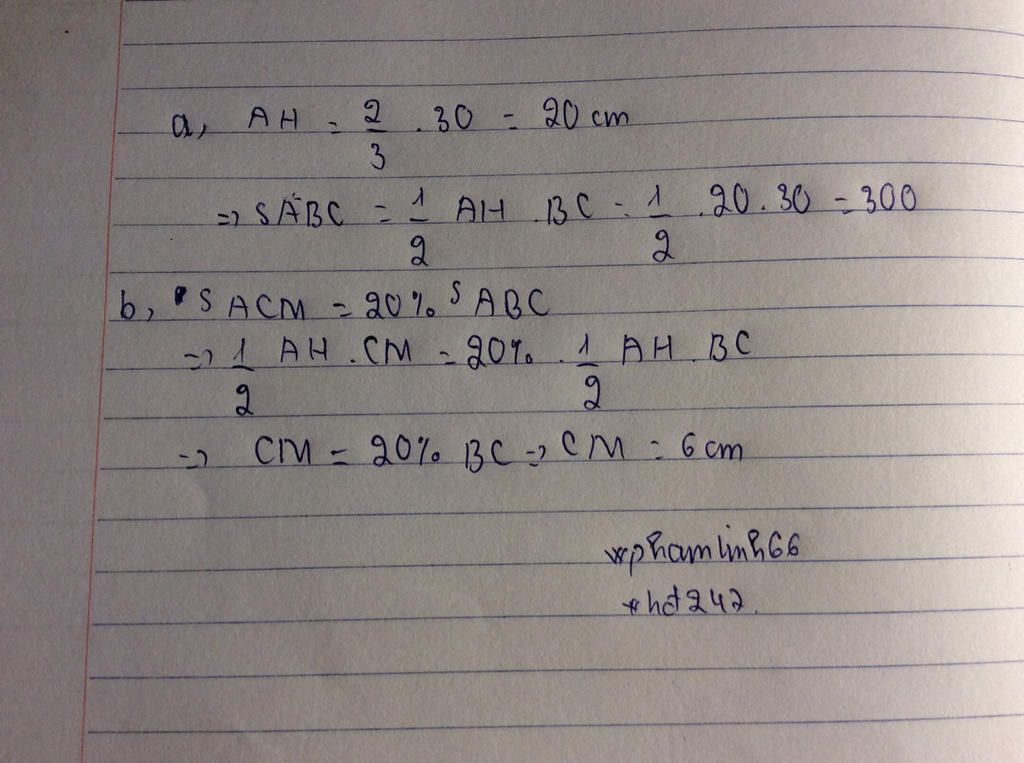 a, AH = 2/3 . 30 = 20 cm
=> SABC = 1/2 AH . BC = 1/2 . 20 . 30 = 300
b, S ACM = 20% S ABC
=> 1/2 AH . CM = 20% . 1/2 AH . BC
=> CM = 20% BC => CM = 6 cm
*phamlinh66
*hdt242.